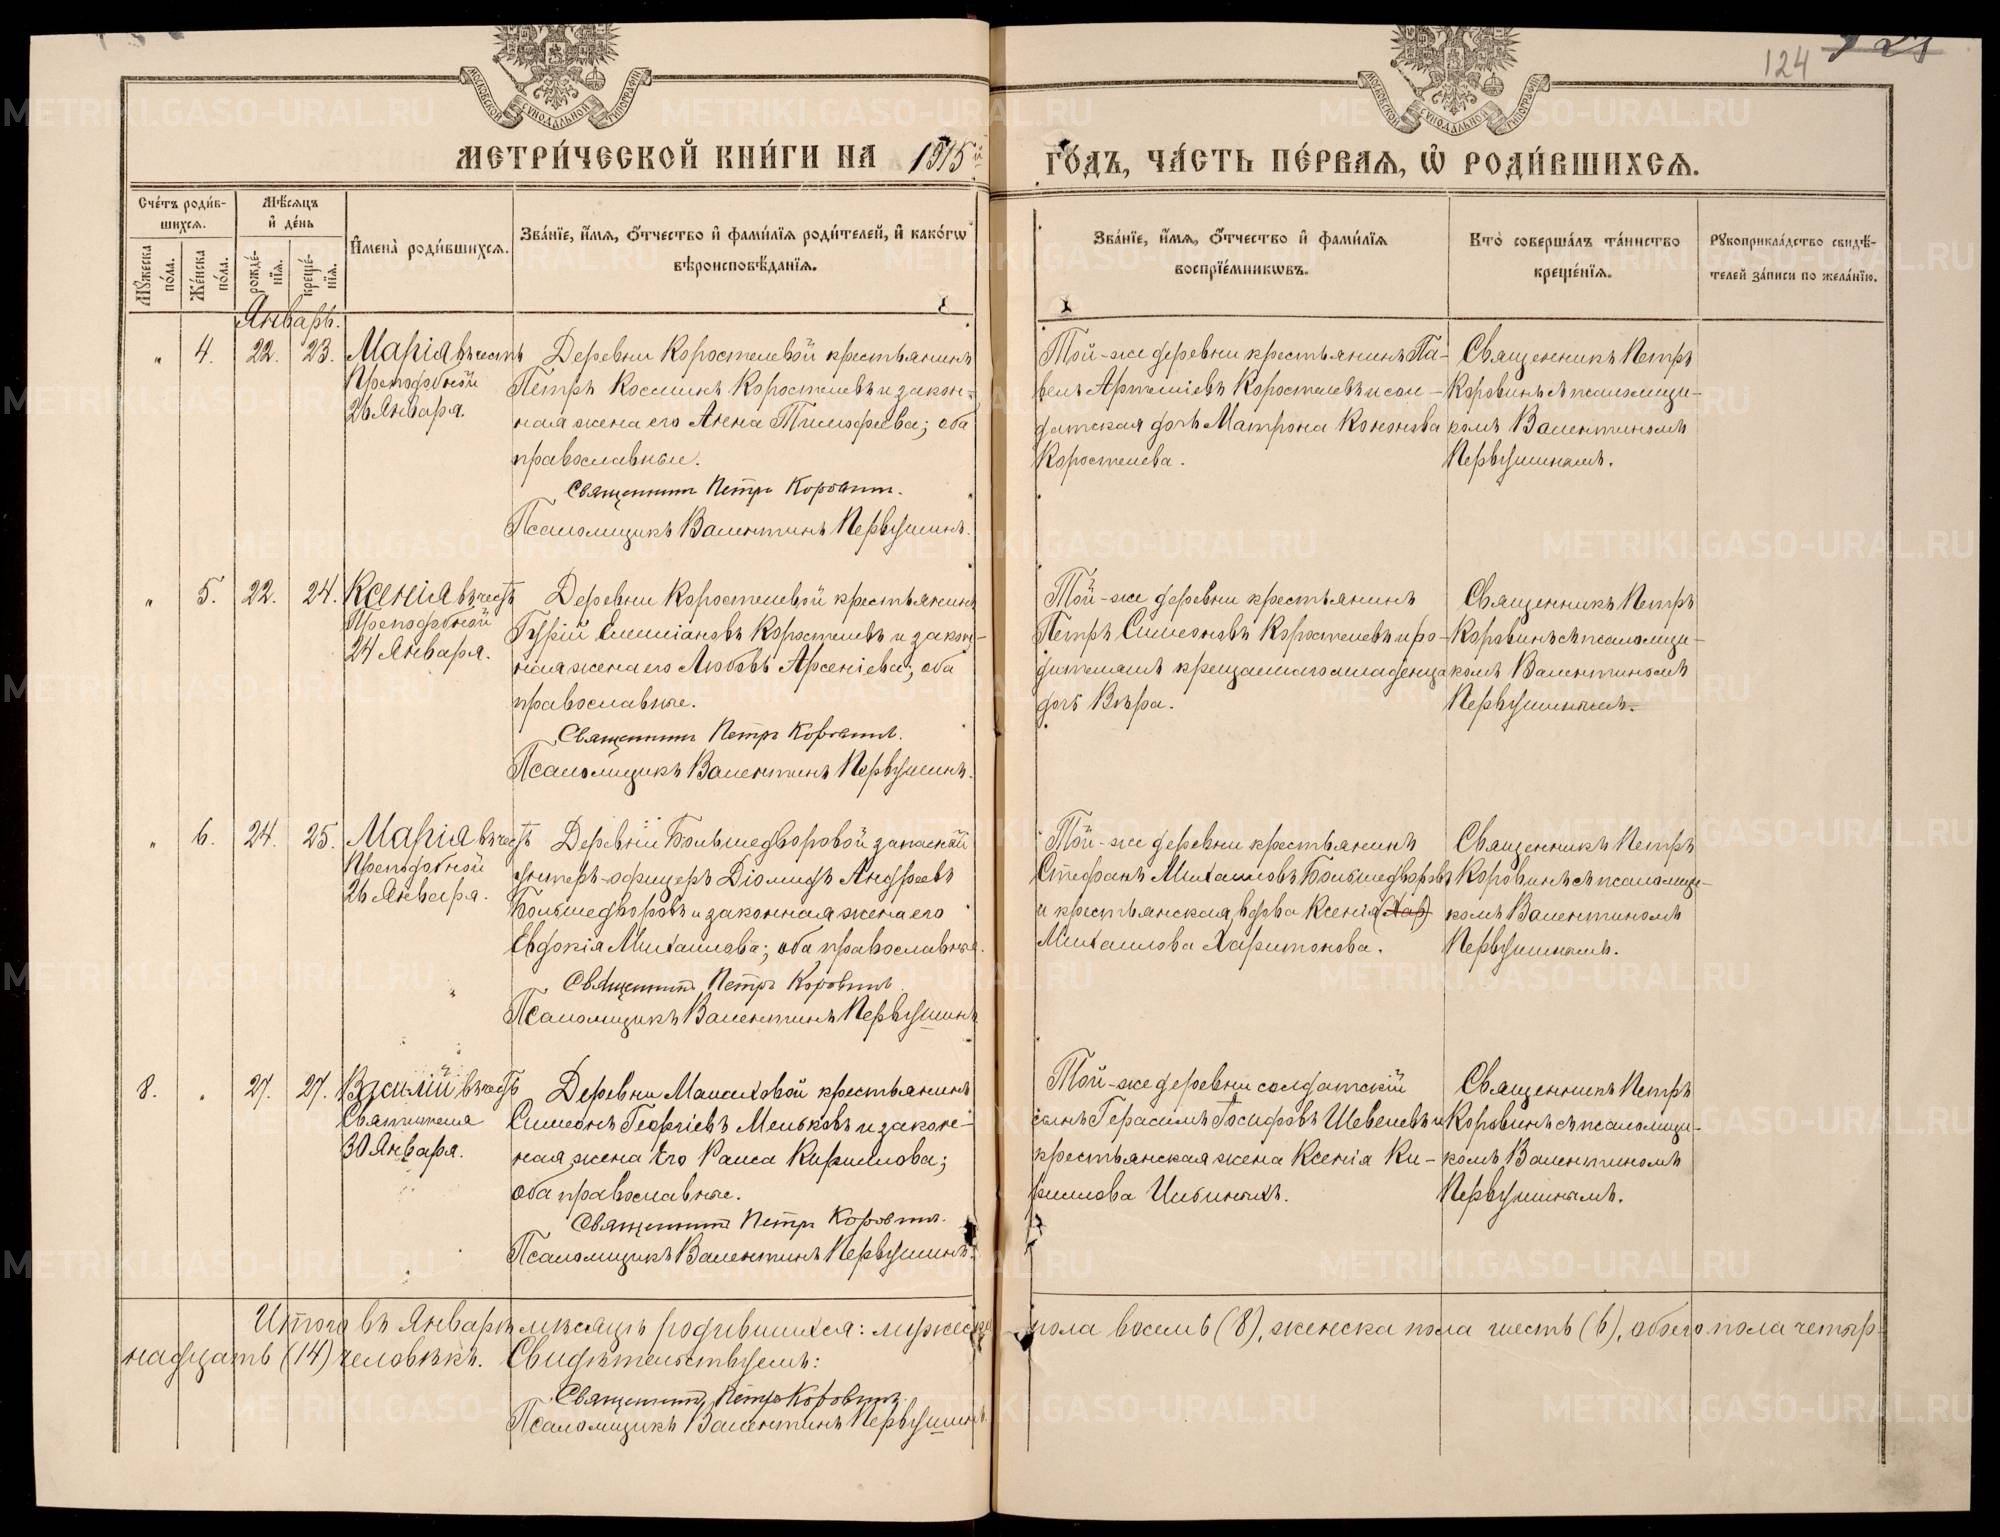 124
МОСКОВСКОЙ СУНОДАЛЬНОЙ ТИПОГРАФІИ
МОСКОВСКОЙ СУНОДАЛЬНОЙ ТИПОГРАФІИ
МЕТРИ́ЧЕСКОЙ КНИ́ГИ НА 1915й ГО́ДЪ, ЧА́СТЬ ПЕ́РВАЯ, Ѡ҆ РОДИ́ВШИХСЯ.
Сче́тъ роди́в-
шихся.
Мѣ́сяцъ
и҆ де́нь
Мꙋжеска по́ла.
Же́нска по́ла.
рожде́-
нїя.
креще́-
нїя.
И҆мена̀ роди́вшихся.
Зва́нїе, и҆́мя, ѻ҆́тчество и҆ фами́лїя роди́телей, и҆ како́гѡ
вѣроисповѣ́данїя.
Зва́нїе, и҆́мя, ѻ҆́тчество и҆ фами́лїя
воспрїе́мникѡвъ.
Кто̀ соверша́лъ та́инство
креще́нїя.
Рꙋкоприкла́дство свидѣ́-
телей за́писи по жела́нїю.
Январь.
" 4. 22. 23. Марія въ честь
Преподобной
26 Января.
Деревни Коростелевой крестьянинъ
Петръ Косминъ Коростелевъ и закон-
ная жена его Анна Тимофеева; оба
православные.
Священникъ Петръ Коровинъ.
Псаломщикъ Валентинъ Первушинъ.
Той-же деревни крестьянинъ Па-
велъ Артеміевъ Коростелевъ и сол-
датская дочь Матрона Кононова
Коростелева.
Священникъ Петръ
Коровинъ съ псаломщи-
комъ Валентиномъ
Первушинымъ.
" 5. 22. 24. Ксенія въ честь
Преподобной
24 Января.
Деревни Коростелевой крестьянинъ
Гурій Емиліановъ Коростелевъ и закон-
ная жена его Любовь Арсеніева; оба
православные.
Священникъ Петръ Коровинъ.
Псаломщикъ Валентинъ Первушинъ.
Той-же деревни крестьянинъ
Петръ Симеоновъ Коростелевъ и ро-
дителямъ крещаемаго младенца
дочь Вѣра.
Священникъ Петръ
Коровинъ съ псаломщи-
комъ Валентиномъ
Первушинымъ.
" 6. 24. 25. Марія въ честь
Преподобной
26 Января.
Деревни Большедворовой запасный
унтеръ-офицеръ Діомидъ Андреевъ
Большедворовъ и законная жена его
Евдокія Михаилова; оба православные.
Священникъ Петръ Коровинъ.
Псаломщикъ Валентинъ Первушинъ
Той-же деревни крестьянинъ
Стефанъ Михаиловъ Большедворовъ
и крестьянская вдова Ксенія (Хар)
Михаилова Харитонова.
Священникъ Петръ
Коровинъ съ псаломщи-
комъ Валентиномъ
Первушинымъ.
8. " 27. 27. Василій въ честь
Святителя
30 Января.
Деревни Малаховой крестьянинъ
Симеонъ Георгіевъ Мельковъ и закон-
ная жена Его Раиса Кириллова;
оба православные.
Священникъ Петръ Коровинъ.
Псаломщикъ Валентинъ Первушинъ.
Той-же деревни солдатскій
сынъ Герасимъ Іосифовъ Шевелевъ и
крестьянская жена Ксенія Ки-
риллова
Священникъ Петръ
Коровинъ съ псаломщи-
комъ Валентиномъ
Первушинымъ.
Итого въ Январѣ мѣсяцѣ родившихся: мужеска пола восемь (8), женска пола шесть (6), обоего пола четыр-
надцать (14) человѣкъ. Свидѣтельствуемъ:
Священникъ Петръ Коровинъ.
Псаломщикъ Валентинъ Первушинъ
METRIKI.GASO-URAL.RU